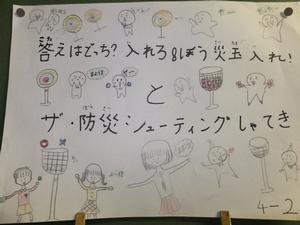 答えはどっち?入れろ&ぼう災玉入れ!
と
ザ・防災シューティングしゃてき
4-2